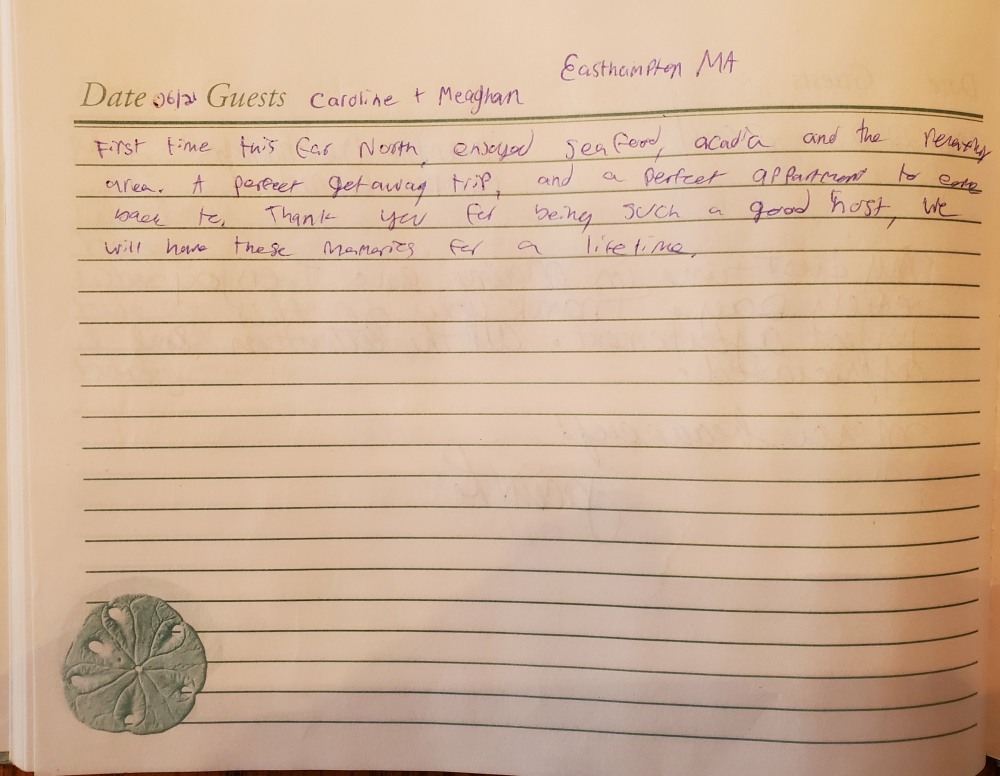 Easthampton MA
Date 06/21 Guests Caroline + Meaghan
First time this far North, enjoyed seafood, acadia and the nearby
area. A perfect getaway trip, and a perfect appartment to come
back to. Thank you for being such a good host, we
will have these memories for a lifetime.